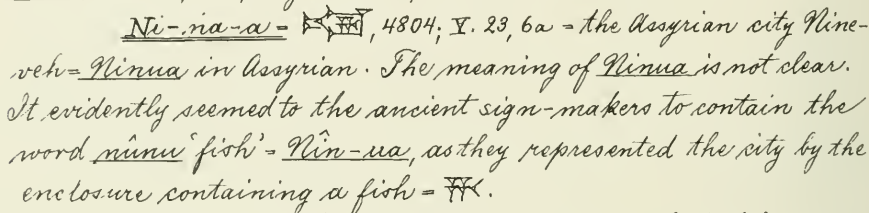 Ni-na-a = 𒀏, 4804; V. 23, 6a = the Assyrian city Nine-
veh = Ninua in Assyrian. The meaning of Ninua is not clear.
It evidently seemed to the ancient sign-makers to contain the
word nûnu 'fish' = Nîn-ua, as they represented the city by the
enclosure containing a fish = 𒄩.